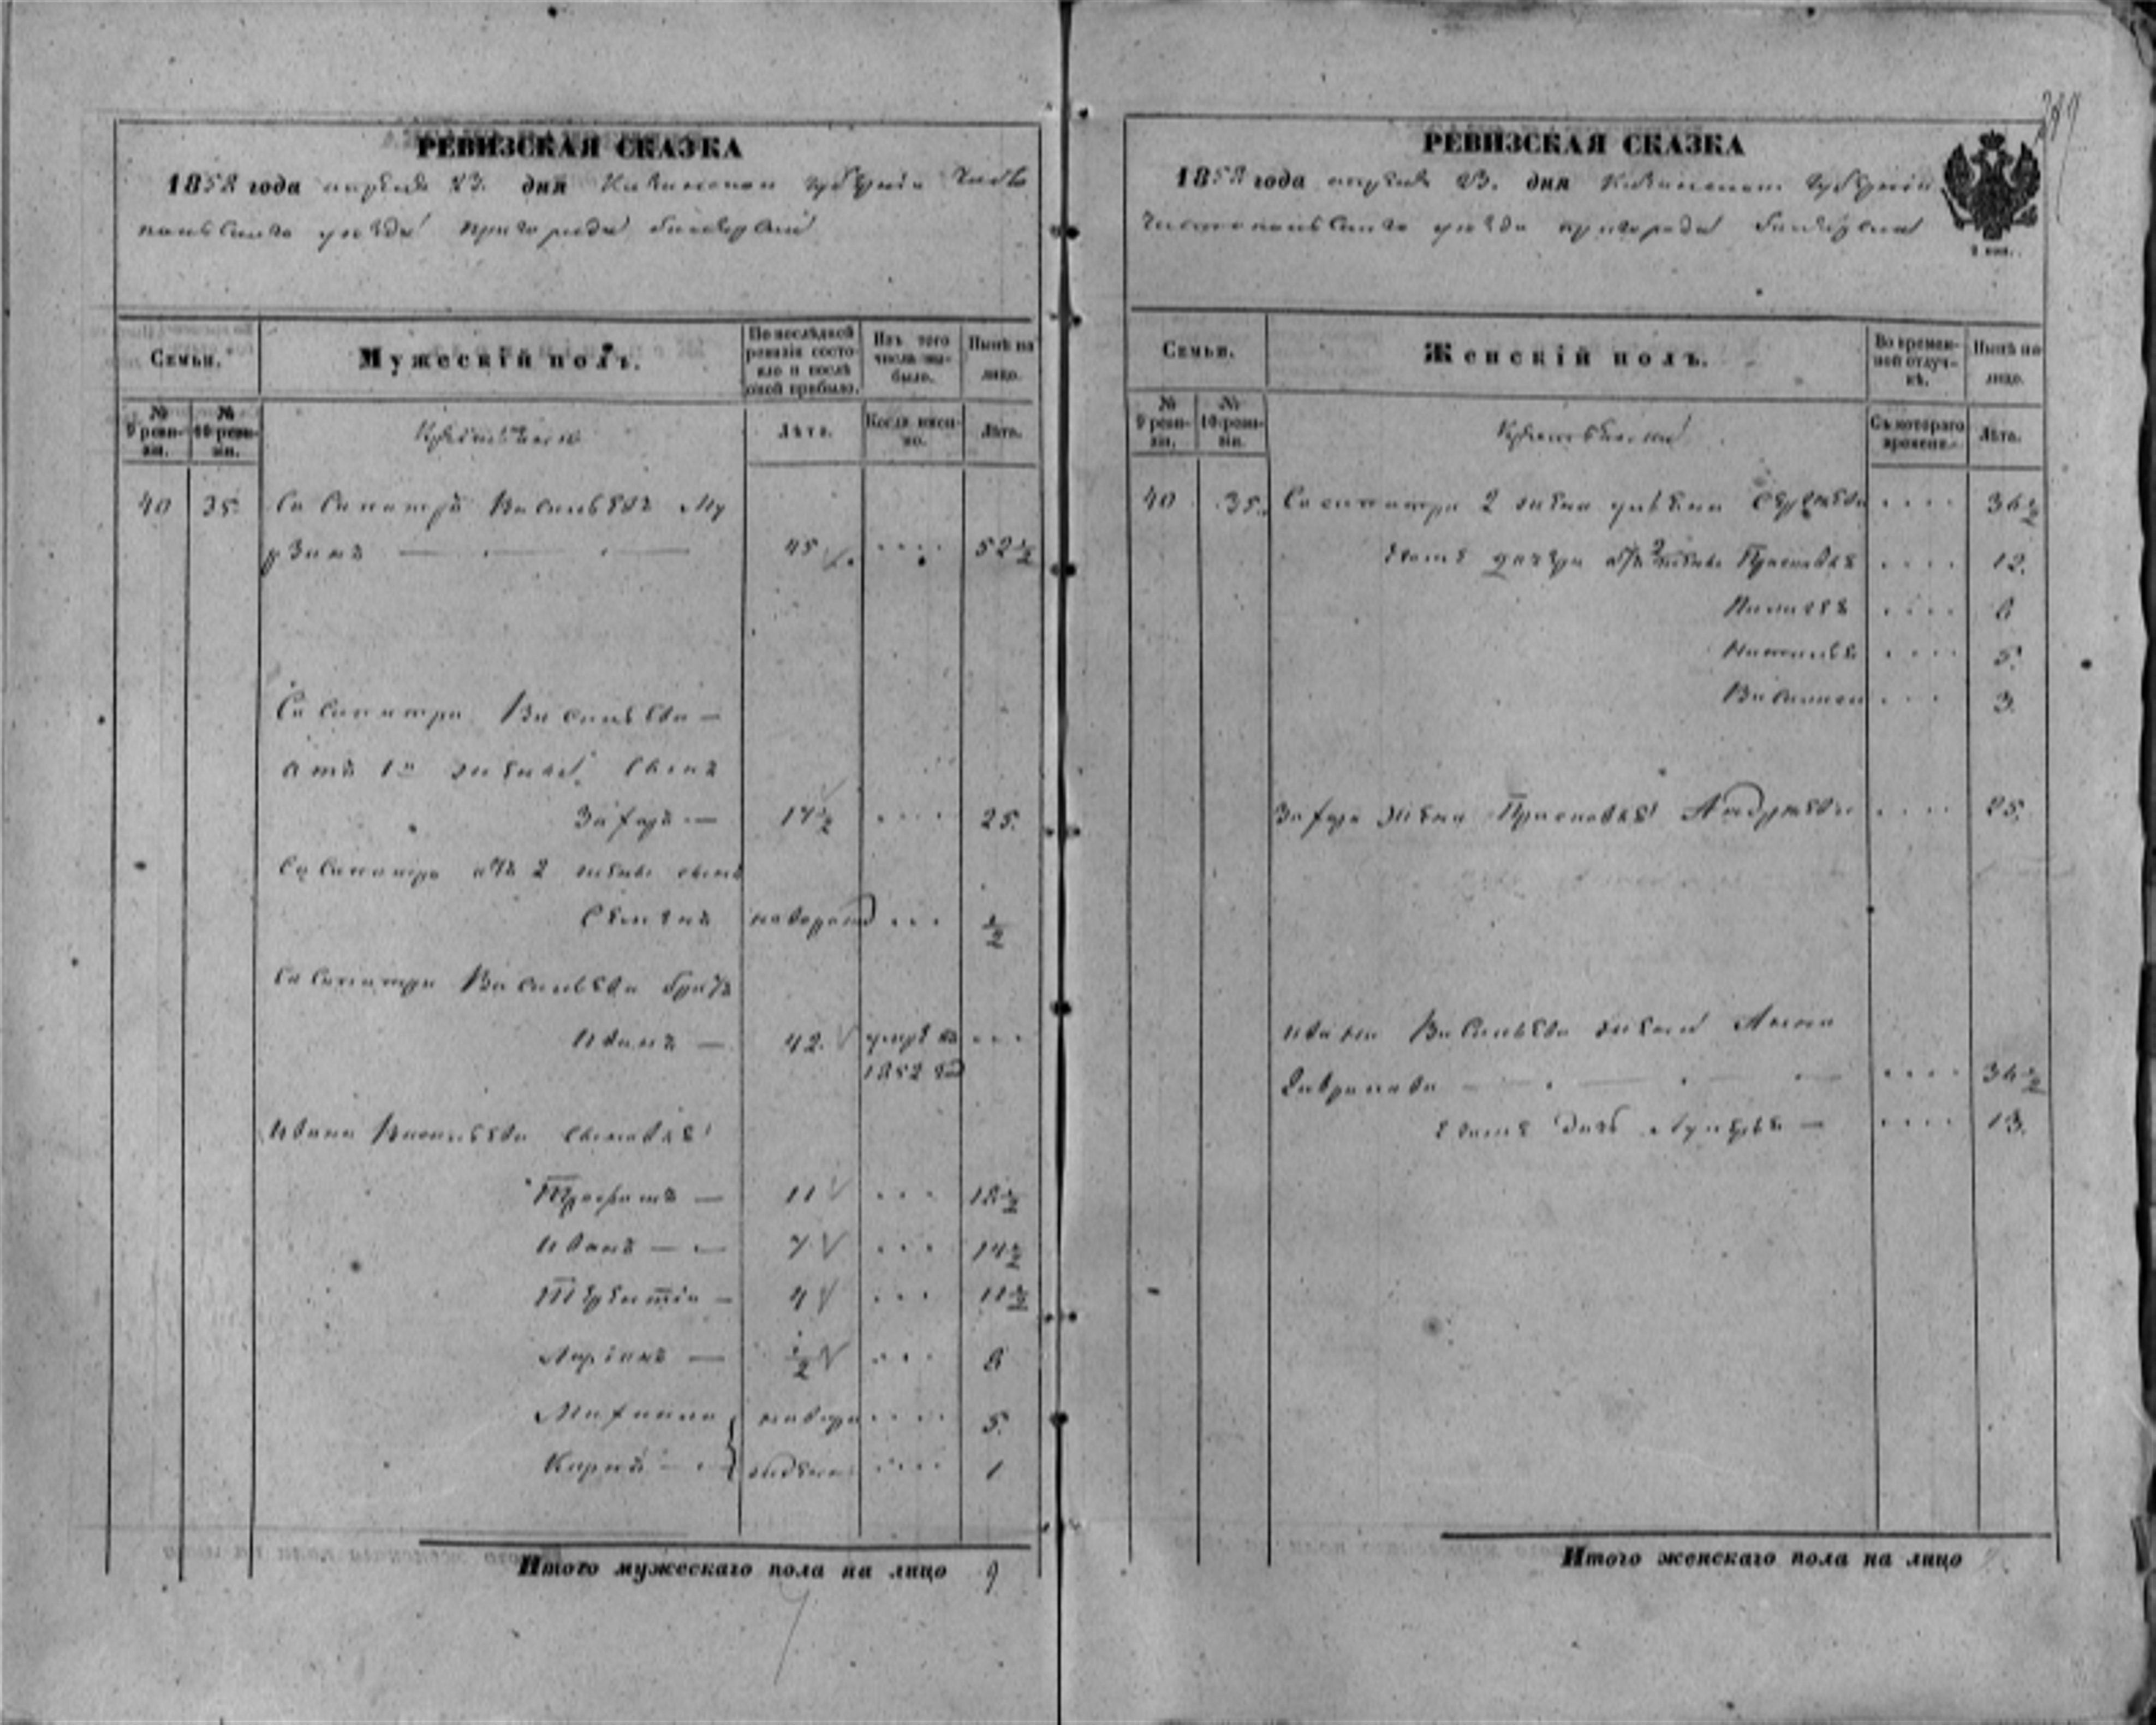 РЕВИЗСКАЯ СКАЗКА
1858 года апреля 23. дня Казанской губернiи Чисто
польскаго уезда пригорода Билярска
Семьи.
Мужескiй полъ.
По послѣдней ревизiи состояло и послѣ оной прибыло.
Изъ того числа выбыло.
Нынѣ на лицо.
№ 9 ревизiи.
№ 10 ревизiи.
Крестьяне
Лѣта.
Когда именно.
Лѣта.
40 35. Васильевъ Му
рзинъ 45 .... 52 1/2
Василева
отъ 1й жены сынъ
Захаръ 17 1/2 .... 25.
отъ 2 жены сынъ
Семенъ новорожд ... 1/2
Василева братъ
Иванъ 42. умре въ ...
1852 го
Ивана Василева сыновья
Трофимъ 11 ... 18 1/2
Иванъ 7 ... 14 1/2
Терентiй 4 ... 11 1/2
Ларiонъ 1/2 ... 8
Михаила новоро .... 5.
Карпъ жденые .... 1
Итого мужескаго пола на лицо 9
РЕВИЗСКАЯ СКАЗКА
1858 года апреля 23. дня Казанской губернiи
Чистопольскаго уезда пригорода Билярска
Семьи.
Женскiй полъ.
Во временной отлучкѣ.
Нынѣ на лицо.
№ 9 ревизiи.
№ 10 ревизiи.
Съ котораго времени.
Лѣта.
40 35. 2 жена Сергеева .... 36 1/2
дочери отъ 2 жены Прасковья .... 12.
.... 8
Наталья .... 5.
Василиса ... 3.
Захара жена Прасковья Андреева .... 25.
Ивана Василева жена Анна
Гаврилова .... 36 1/2
дочь Лукерья .... 13.
Итого женскаго пола на лицо